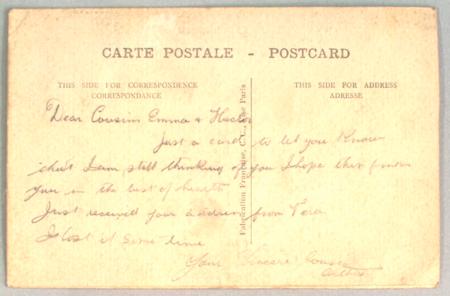 CARTE POSTALE - POSTCARD
THIS SIDE FOR CORRESPONDENCE
CORRESPONDANCE
THIS SIDE FOR ADDRESS
ADRESSE
Fabrication Française, Paris
Dear Cousins Emma &
Just a card to let you know
that I am still thinking of you I hope this
you in the best of health
Just received your address from Vera
I lost it some time
Your Sincere Cousin